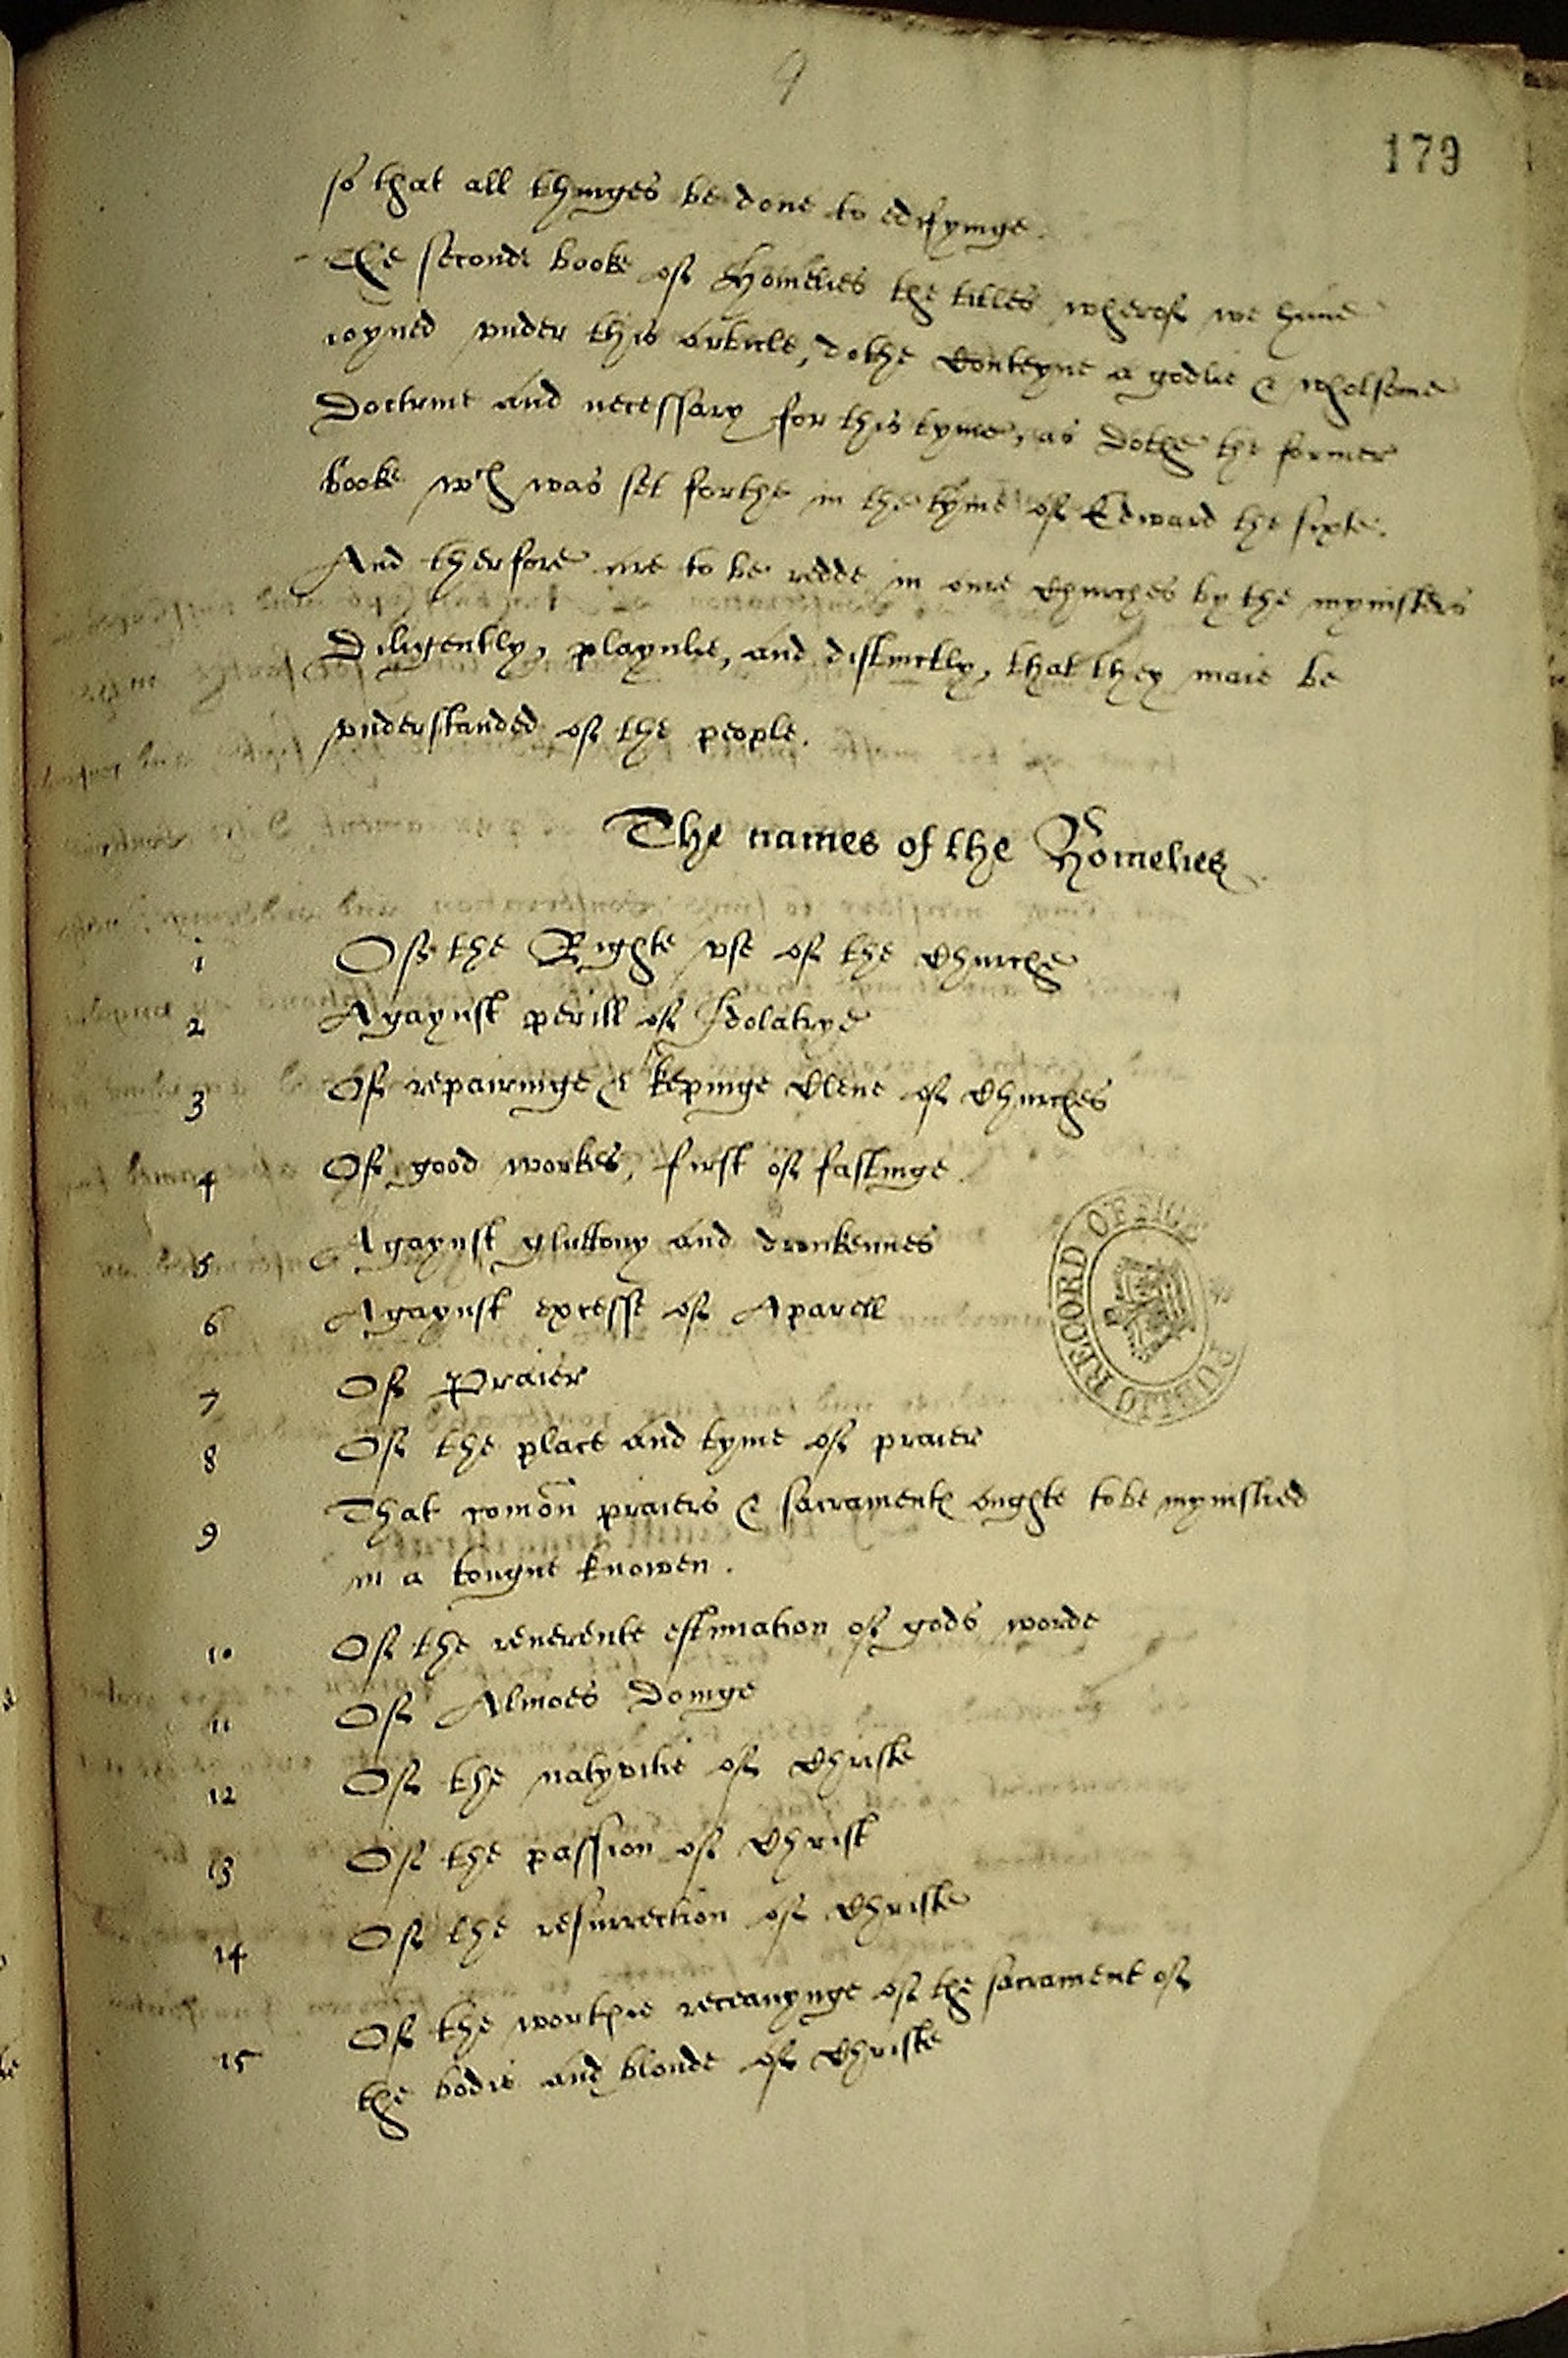 9
179
so that all thinges be done to edifyinge.
The seconde booke of Homelies the titles wherof we haue
ioyned vnder this article, dothe conteyne a godlie & wholsome
doctrine and necessary for this tyme, as dothe the former
booke wch was set forthe in the tyme of Edward the sixte.
And therfore are to be redde in oure churches by the mynisters
diligently, playnlie, and distinctly, that they maie be
vnderstanded of the people.
The names of the Homelies
1 Of the Righte vse of the churche
2 Agaynst perill of Idolatrye
3 Of repairinge & kepinge clene of churches
4 Of good workes, first of fastinge.
5 Agaynst gluttony and dronkennes
6 Agaynst excesse of Aparell
7 Of Praier
8 Of the place and tyme of praier
9 That comon praiers & sacramentes oughte to be mynistred
in a tongue knowen.
10 Of the reuerente estimation of gods worde
11 Of Almoes doinge
12 Of the natyvitie of Christe
13 Of the passion of Christ
14 Of the resurrection of Christe
15 Of the worthie receauynge of the sacrament of
the bodie and bloude of Christe
PUBLIC RECORD OFFICE